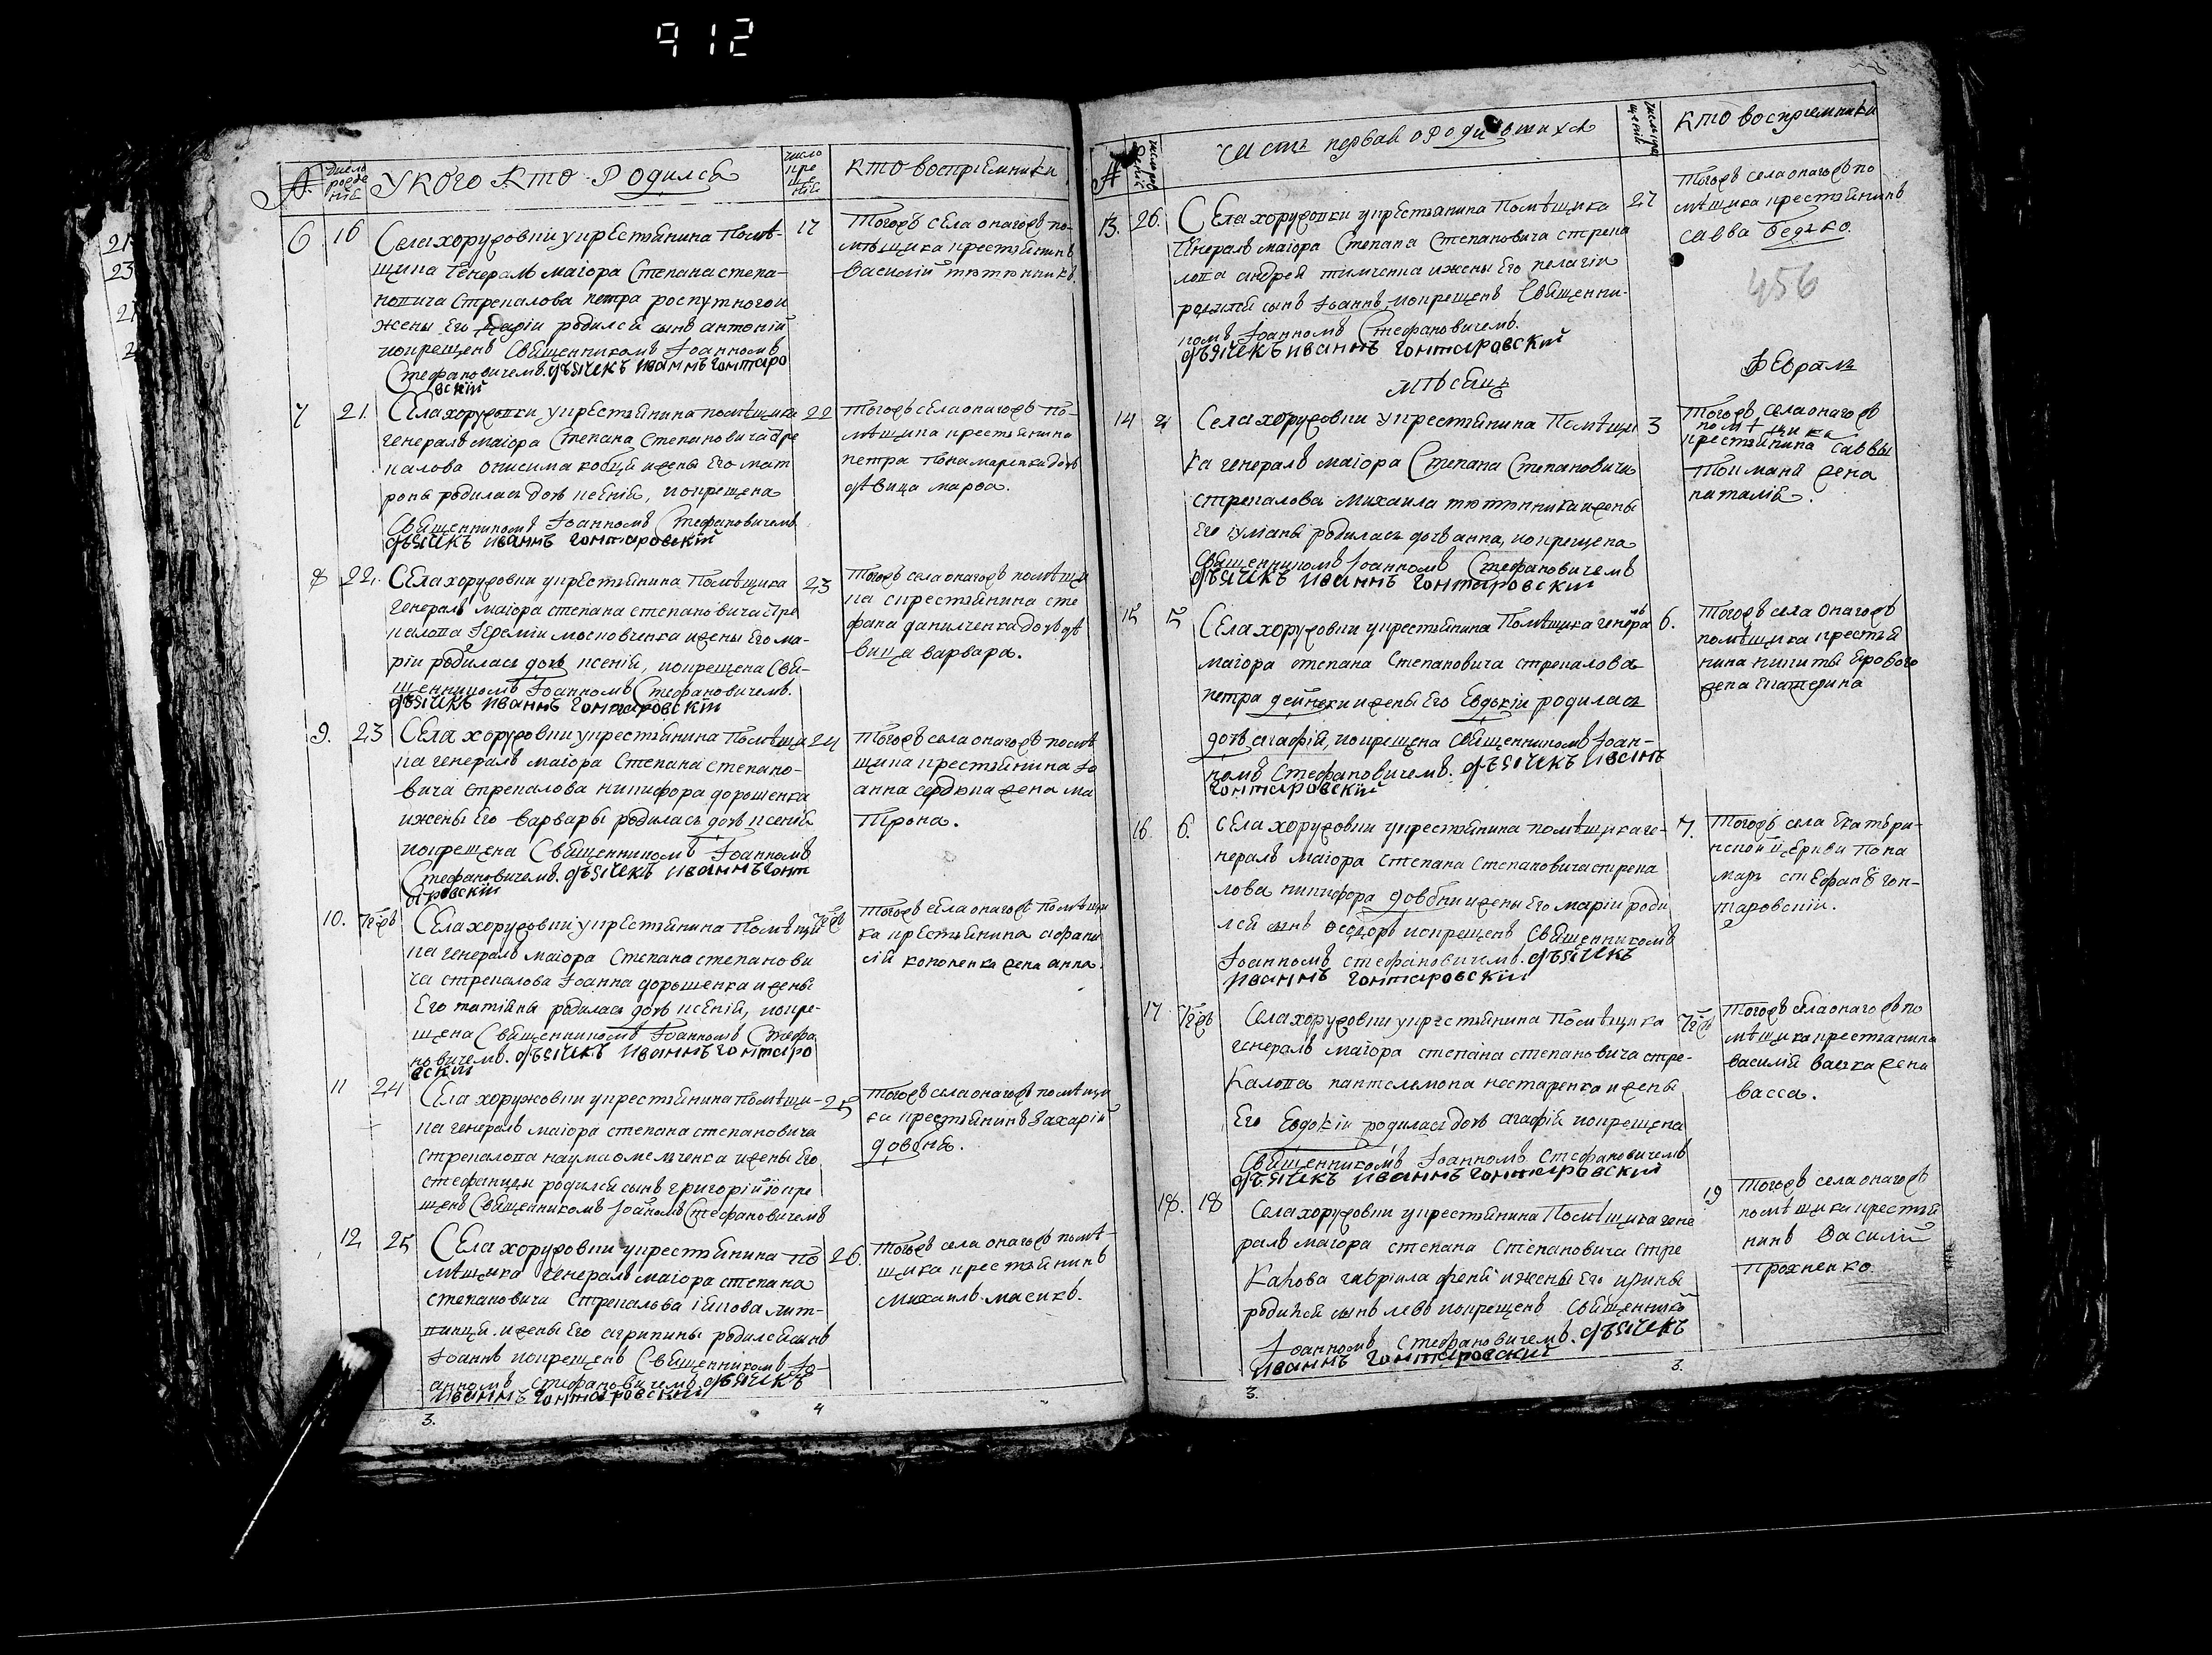 912
№
число рожде нія
У КОГО КТО РОдился
число кре ще нія
кто воспріемники
6 16 Села хоружовки у крестьянина Помѣ- 17
щика Генералъ маіора Степана степа-
новича Стрекалова петра роспутного и
жены Его Маріи родился сынъ антоній
и окрещенъ Священникомъ Іоанномъ
Стефановичемъ. дьячекъ иваннъ гонтаро
вскій
Тогожъ села оногожъ по-
мѣщика крестьянинъ
Василій тютюнникъ.
7 21. Села хоружовки у крестьянина помѣщика 22
генералъ маіора Степана Степановича Стре
калова онисима кобци и жены Его мат
роны родилась дочь ксенія, и окрещена
Священникомъ Іоанномъ Стефановичемъ
дьячекъ иваннъ гонтаровскій
Тогожъ села оногожъ по-
мѣщика крестьянина
петра понамаренка дочь
дѣвица марфа.
8 22. Села хоружовки у крестьянина Помѣщика 23
генералъ маіора степана степановича Стре
калова Іереміи московченка и жены Его ма-
ріи родилась дочь ксенія, и окрещена Свя-
щенникомъ Іоанномъ Стефановичемъ.
дьячекъ иваннъ гонтаровскій
Тогожъ села оногожъ помѣщи
ка крестьянина сте
фана данилченка дочь дѣ
вица варвара.
9. 23 Села хоружовки у крестьянина Помѣщи 24
ка генералъ маіора Степана степано-
вича стрекалова никифора дорошенка
и жены Его варвары родилась дочь ксенія
и окрещена Священникомъ Іоанномъ
Стефановичемъ. дьячекъ иваннъ гонт
аровскій
Тогожъ села оногожъ помѣ
щика крестьянина Іо
анна сердюка жена ма
трона.
10. Села хоружовки у крестьянина Помѣщи
ка генералъ маіора Степана степанови
ча стрекалова Іоанна дорошенка и жены
Его татіяны родилась дочь ксенія, и окре-
щена Священникомъ Іоанномъ Стефа
новичемъ. дьячекъ иваннъ гонтаро
вскій
Тогожъ села оногожъ помѣщи
ка крестьянина афана
сія кононенка жена анна.
11 24 Села хоружовки у крестьянина помѣщи- 25
ка генералъ маіора степана степановича
стрекалова наума омельченка и жены Его
стефаниды родился сынъ григорій и окре
щенъ Священникомъ Іоанномъ Стефановичемъ
Тогожъ села оногожъ помѣщи
ка крестьянинъ Захарій
довбня.
12 25 Села хоружовки у крестьянина по 26.
мѣщика Генералъ маіора степана
степановича Стрекалова Іякова лит-
винця и жены Его агрипины родился сынъ
Іоаннъ и окрещенъ Священникомъ Іо-
анномъ Стефановичемъ. дьячекъ
иваннъ гонтаровскій
Тогожъ села оногожъ помѣ-
щика крестьянинъ
Михаилъ масикъ.
3. 4
№
часть первая о родившихся
кто воспріемники
13. 26. Села хоружовки у крестьянина Помѣщика 27
Генералъ маіора Степана Степановича стрека
лова андрея тимченка и жены Его пелагіи
родился сынъ Іоаннъ и окрещенъ Священни-
комъ Іоанномъ Стефановичемъ.
дьячекъ иваннъ гонтаровскій
Тогожъ села оногожъ по
мѣщика крестьянинъ
савва бедъко.
456
мѣсяцъ
Февраль
14 2 Села хоружовки у крестьянина Помѣщи 3
ка генералъ маіора Степана Степановича
стрекалова Михаила тютюнника и жены
Его іуліаны родилась дочь анна, и окрещена
Священникомъ Іоанномъ Стефановичемъ
дьячекъ иваннъ гонтаровскій
Тогожъ села оногожъ
помѣщика
крестьянина саввы
жена
наталія.
15 5 Села хоружовки у крестьянина Помѣщика генералъ 6.
маіора степана Степановича стрекалова
петра дейнеки и жены Его Евдокіи родилась
дочь агафія, и окрещена Священникомъ Іоан-
номъ Стефановичемъ. дьячекъ иваннъ
гонтаровскій
Тогожъ села оногожъ
помѣщика крестья
нина никиты
жена Екатерина
16. 6. Села хоружовки у крестьянина помѣщика ге- 7.
нералъ маіора степана Степановича стрека
лова никифора довбни и жены Его маріи роди
лся сынъ феодоръ и окрещенъ Священникомъ
Іоанномъ стефановичемъ. дьячекъ
иваннъ гонтаровскій
Тогожъ села Екатери-
нской церкви Пона
марь стефанъ гон-
таровскій.
17 Села хоружовки у крестьянина Помѣщика
генералъ маіора степана степановича стре-
калова пантелимона нестеренка и жены
Его Евдокіи родилась дочь агафія и окрещена
Священникомъ Іоанномъ Стефановичемъ
дьячекъ иваннъ гонтаровскій
Тогожъ села оногожъ по
мѣщика крестьянина
василія жена
васса.
18. 18 Села хоружовки у крестьянина Помѣщика гене 19
ралъ маіора степана Степановича стре
калова гавріила фені и жены Его ирины
родился сынъ левъ и окрещенъ Священнико
Іоанномъ Стефановичемъ. дьячекъ
иваннъ гонтаровскій
Тогожъ села оногожъ
помѣщика крестья
нинъ Василій
Прохненко
3. 3.